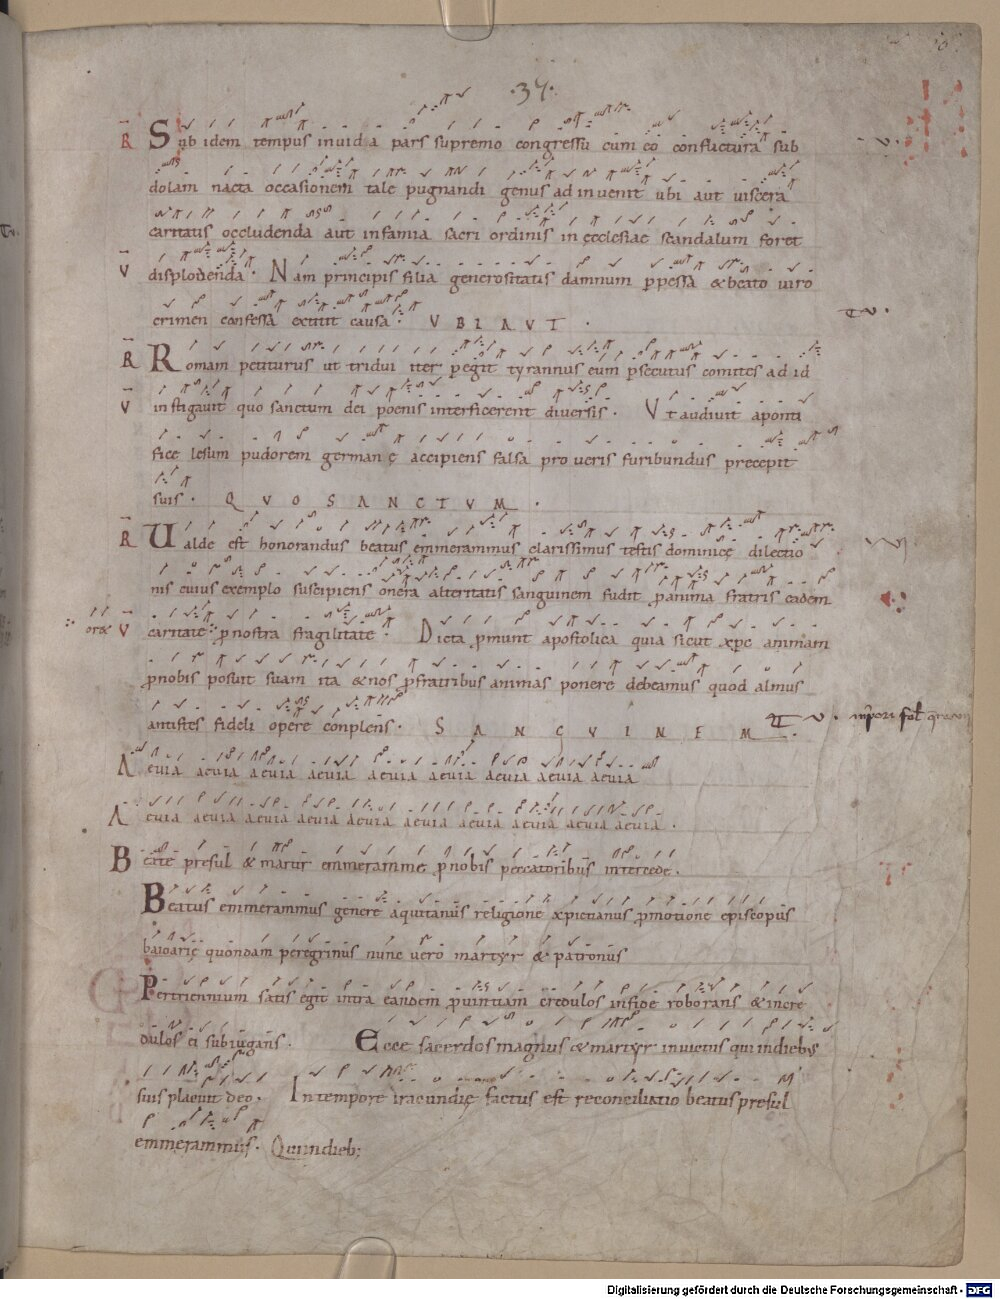 ·37·
R Sub idem tempus invidia pars supremo congressu cum eo conflictura sub
dolam nacta occasionem tale pugnandi genus adinvenit ubi aut viscera
caritatis occludenda aut infamia sacri ordinis in ecclesiae scandalum foret
V displodenda. Nam principis filia generositatis damnum p̱pessa & beato viro
crimen confessa extitit causa. VBI AVT.
R Romam petiturus ut tridui iter pegit tyrannus eum psecutus comites ad id
V instigavit quo sanctum dei poenis interficerent diversis. Ut audivit a ponti
fice lesum pudorem germanę accipiens falsa pro veris furibundus precepit
suis. QVO SANCTVM.
R Ualde est honorandus beatus emmerammus clarissimus testis dominicę dilectio
nis cuius exemplo suscipiens onera alteritatis sanguinem fudit panima fratris eadem
V caritate pnostra fragilitate. Dicta pmunt apostolica quia sicut xpc animam
pnobis posuit suam ita & nos pfratribus animas ponere debeamus quod almus
antistes fideli opere conplens. SANGVINEM.
Aevia aevia aevia aevia aevia aevia aevia aevia aevia
Aevia aevia aevia aevia aevia aevia aevia aevia aevia.
Beate presul & martir emmeramme pnobis peccatoribus intercede.
Beatus emmerammus genere aquitanus religione xpictianus pmotione episcopus
baioarię quondam peregrinus nunc vero martyr & patronus
Pertriennium satis egit intra eandem pvintiam credulos infide roborans & incre
dulos ei subiugans. Ecce sacerdos magnus & martyr invictus qui indiebus
suis placuit deo. In tempore iracundię factus est reconciliatio beatus presul
emmerammus. Qui indieb;
Digitalisierung gefördert durch die Deutsche Forschungsgemeinschaft - DFG